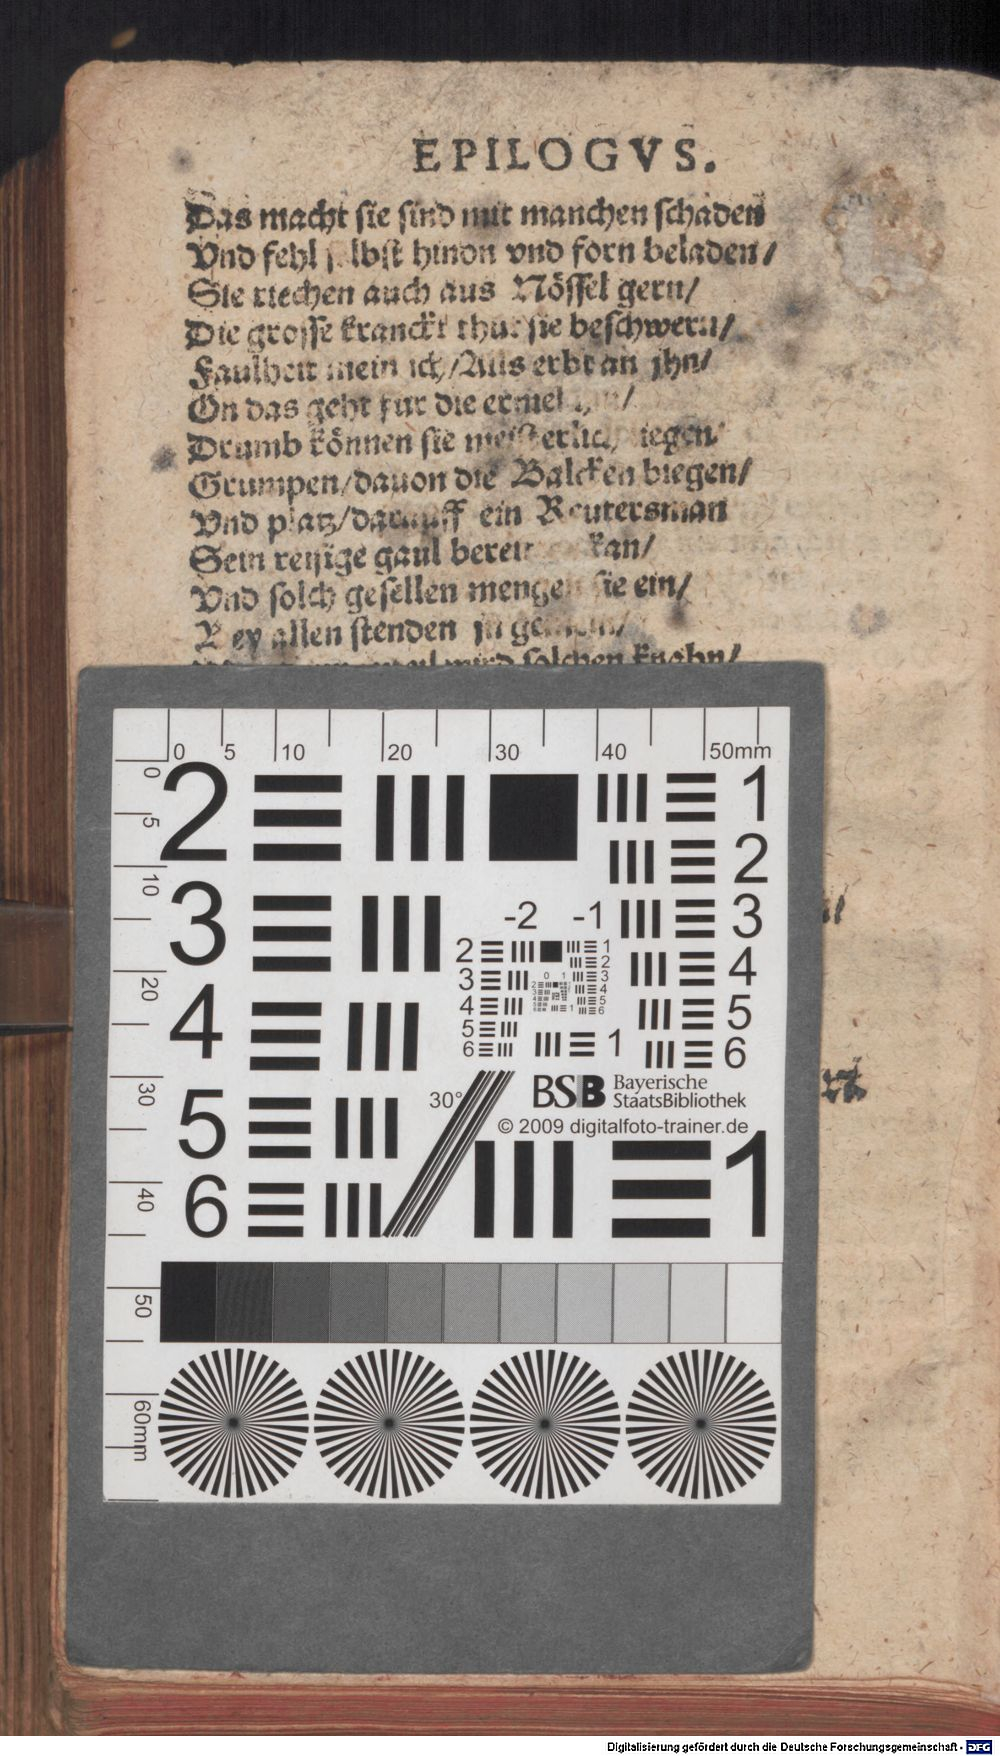 EPILOGVS.
Das macht sie sind mit manchen schaden
Vnd fehl hinden vnd forn beladen/
Sie riechen auch aus Nössel gern/
Die grosse kranckt thut sie beschwern/
Faulheit mein ich/Als erbt an jhn/
On das geht fur die
Drumb können sie meisterlich
Grumpen/dauon die Balcken biegen/
Vnd platz/darauff ein Reutersman
Sein reisige gaul kan/
Vnd solch gesellen mengen sie ein/
Bey allen stenden
wird solchen knabn/
0 5 10 20 30 40 50mm
0 5 10 20 30 40 50 60mm
2 1
2
3 -2 -1 3
2 1
2
3 3
4 4
5 5
6 6
0 1
4 4
5
1 6
30°
BSB Bayerische
StaatsBibliothek
© 2009 digitalfoto-trainer.de
5
6 1
Digitalisierung gefördert durch die Deutsche Forschungsgemeinschaft - DFG